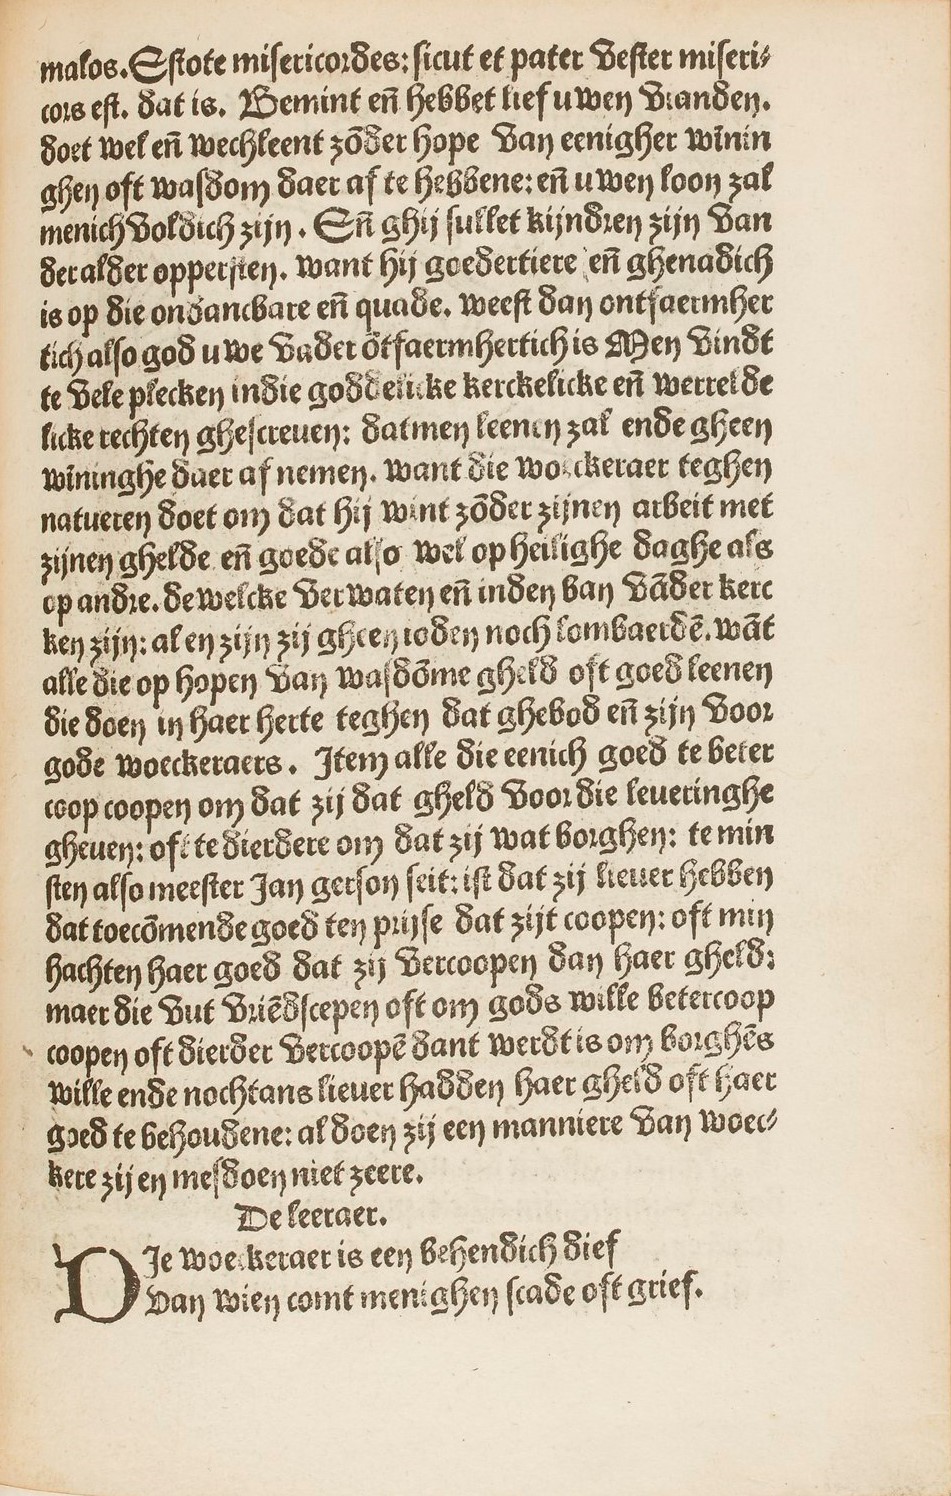 malos. Estote misericordes: sicut et pater vester miseri⸗
cors est. dat is. Bemint eñ hebbet lief uwen vianden.
doet wel eñ wechleent zõder hope van eenigher wĩnin
ghen oft wasdom daer af te hebbene: eñ uwen loon zal
menichvoldich zijn. Eñ ghij sullet kijndren zijn van
der alder oppersten. want hij goedertiere eñ ghenadich
is op die ondancbare eñ quade. weest dan ontfaermher
tich also god uwe vader õtfaermhertich is Men vindt
te vele plecken indie goddelicke kerckelicke eñ werrelde
licke rechten ghescreven: datmen leenen zal ende gheen
wĩninghe daer af nemen. want die woeckeraer teghen
natueren doet om dat hij wint zõder zijnen arbeit met
zijnen ghelde eñ goede also wel op heilighe daghe als
op andre. de welcke verwaten eñ inden ban vãder kerc
ken zijn: al en zijn zij gheen ioden noch lombaerdẽ. wãt
alle die op hopen van wasdõme gheld oft goed leenen
die doen in haer herte teghen dat ghebod eñ zijn voor
gode woeckeraers. Item alle die eenich goed te beter
coop coopen om dat zij dat gheld voor die leveringhe
gheuen: oft te dierdere om dat zij wat borghen: te min
sten also meester Jan gerson seit: ist dat zij liever hebben
dat toecõmende goed ten prijse dat zijt coopen: oft min
hachten haer goed dat zij vercoopen dan haer gheld:
maer die vut vriẽdscepen oft om gods wille betercoop
coopen oft dierder vercoopẽ dant werdt is om borghẽs
wille ende nochtans liever hadden haer gheld oft haer
goed te behoudene: al doen zij een manniere van woec⸗
kere zij en mesdoen niet zeere.
De leeraer.
DIe woeckeraer is een behendich dief
Van wien comt menighen scade oft grief.